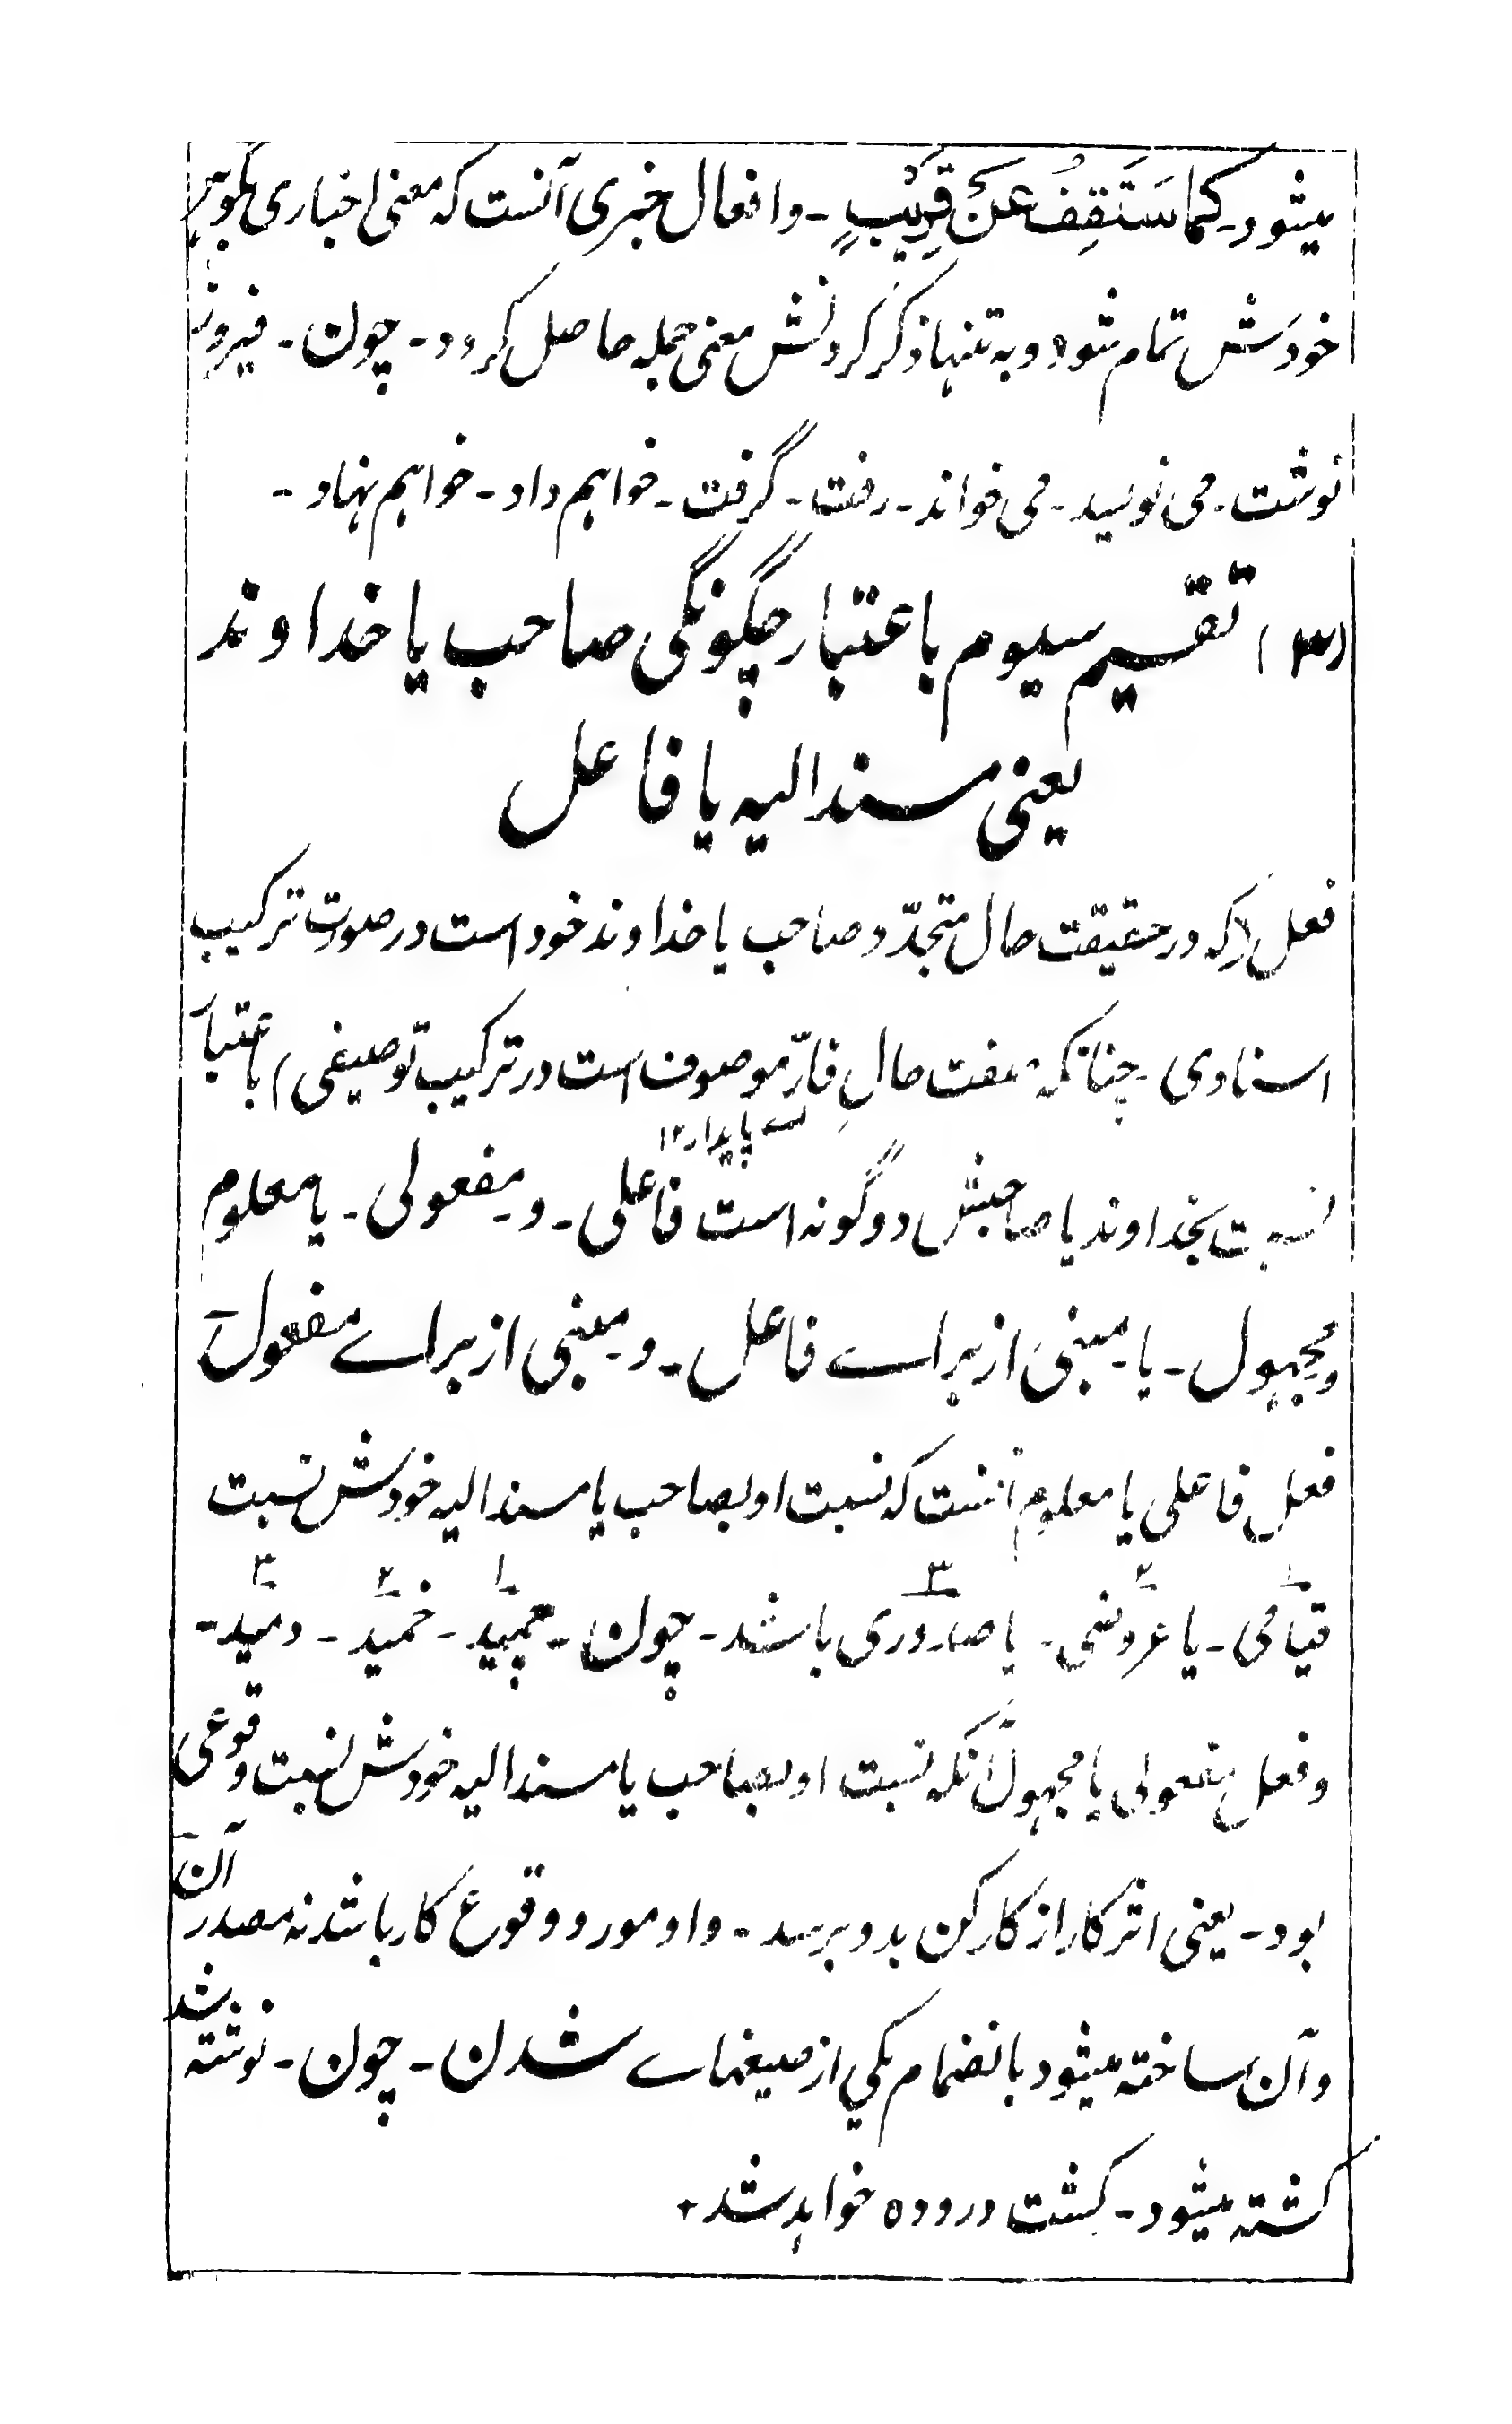 میشود۔ کَما سَتَقِفُ عَنْ قَرِیْبٍ ۔ وافعال خبری آنست که معنی اخباری بگوهر
خودَش تمام شود و به تنها ذکر کردنش معنی جمله حاصل گردد۔ چون۔ فیروز
نوشت۔ می نویسد۔ می خواند۔ رفت۔ گرفت۔ خواهم داد۔ خواهم نهاد۔
(۳) تقسیم سیوم باعتبار چگونگی صاحب یا خداوند
یعنی مسندالیه یا فاعل
فعل (که در حقیقت حال متجدّد صاحب یا خداوند خود است در صورت ترکیب
اسنادی۔ چنانکه صفت حالِ قارّ موصوف است در ترکیب توصیفی) باعتبار
ے پایدار ۱۲
نسبت بخداوند یا صاحبش دو گونه است فاعلی۔ و۔ مفعولی۔ یا معلوم
و مجهول۔ یا۔ مبنی از براے فاعل۔ و۔ مبنی از براے مفعول۔
فعل فاعلی یا معلوم آنست که نسبت او بصاحب یا مسندالیه خودش نسبت
۱ ۲ ۳ ۱ ۲ ۳
قیامی۔ یا عروضی۔ یا صدوری باشد۔ چون۔ چمید۔ خمید۔ دمید۔
و فعل مفعولی یا مجهول آنکه نسبت او بصاحب یا مسندالیه خودش نسبت وقوعی
بود۔ یعنی اثر کار از کارکن بدو برسد۔ و او مورد وقوع کار باشد نه مصدر آن
و آن ساخته میشود بانضمام یکی از صیغهاے شدن۔ چون۔ نوشته شد
کشته میشود۔ کشت دروده خواهد شد +